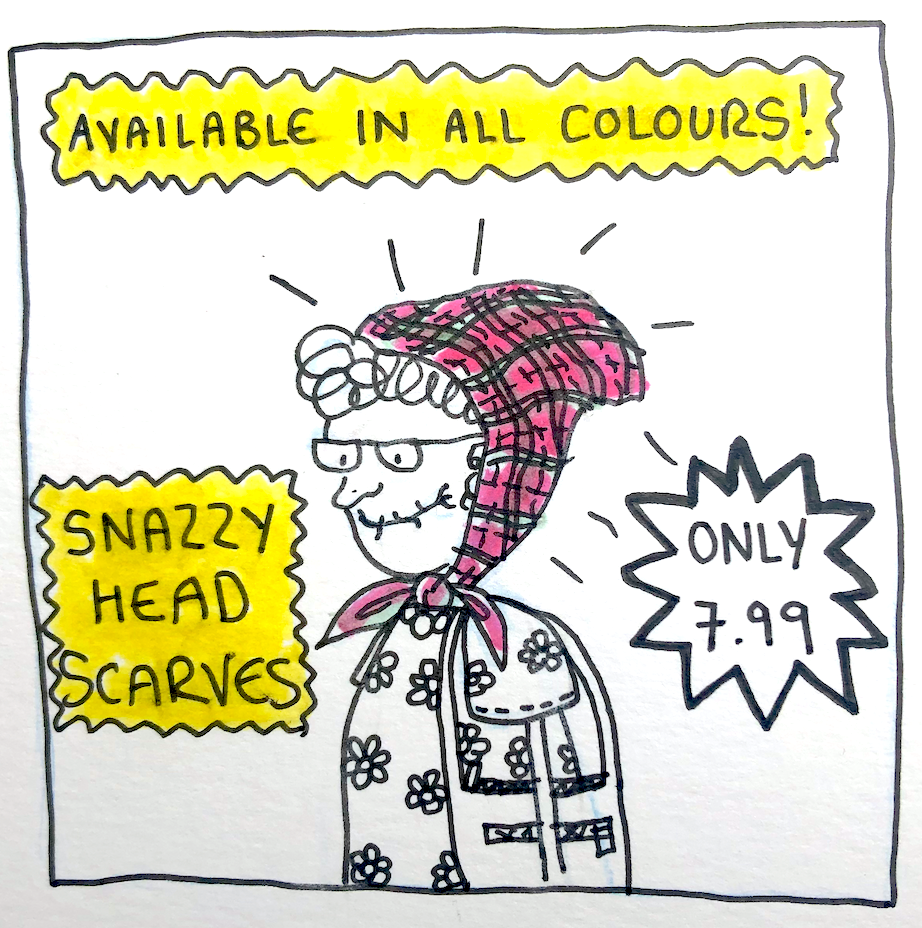 AVAILABLE IN ALL COLOURS!
SNAZZY
HEAD
SCARVES
ONLY
7.99